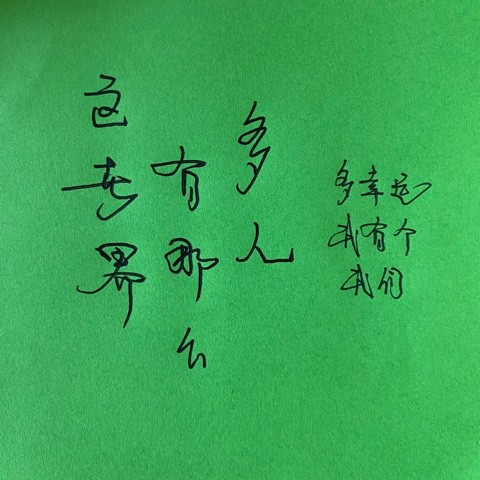 这世界
有那么
多人
多幸运
我有个
我们